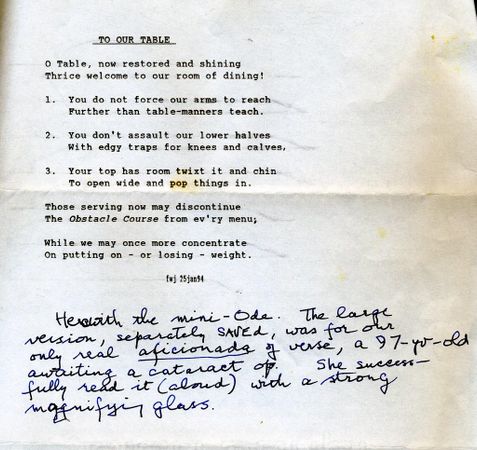 TO OUR TABLE
O Table, now restored and shining
Thrice welcome to our room of dining!
1. You do not force our arms to reach
Further than table-manners teach.
2. You don't assault our lower halves
With edgy traps for knees and calves,
3. Your top has room twixt it and chin
To open wide and pop things in.
Those serving now may discontinue
The Obstacle Course from ev'ry menu;
While we may once more concentrate
On putting on - or losing - weight.
fwj 25jan94
Herewith the mini-Ode. The large
version, separately SAVED, was for our
only real aficionada of verse, a 97-yr-old
awaiting a cataract op. She success-
fully read it (aloud) with a strong
magnifying glass.